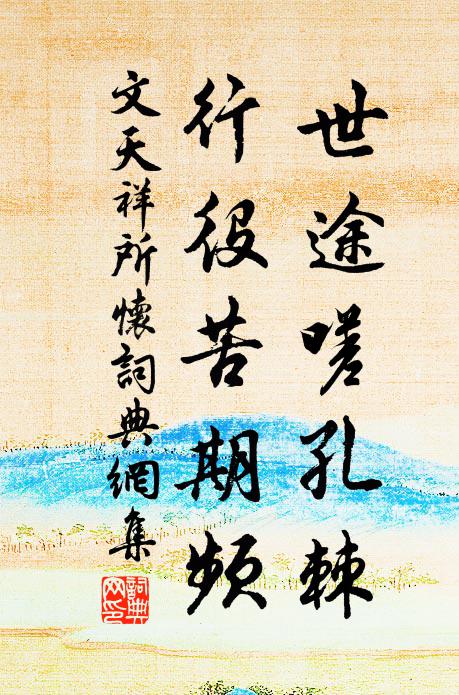 世途嗟孔棘
行役苦期頻
文天祥所懷詞典網集
詞典
网印